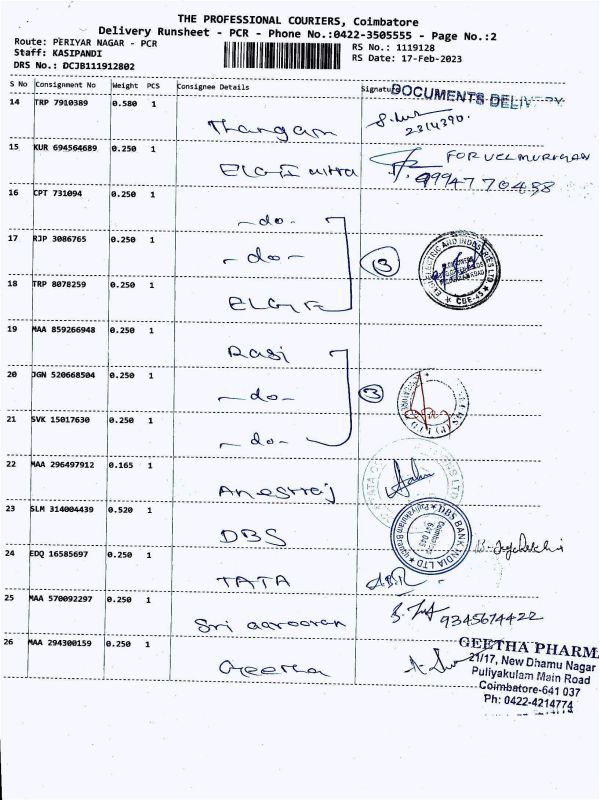 THE PROFESSIONAL COURIERS, Coimbatore
Delivery Runsheet - PCR - Phone No.:0422-3505555 - Page No.:2
Route: PERIYAR NAGAR - PCR
RS No.: 1119128
Staff: KASIPANDI
RS Date: 17-Feb-2023
DRS No.: DCJB111912802
S No Consignment No Weight PCS Consignee Details Signatu
DOCUMENTS DELIVERY
14 TRP 7910389 0.580 1
Thangam
2314390.
15 KUR 694564689 0.250 1
ELGI ultra
FOR VELMURUGAN
9994770458
16 CPT 731094 0.250 1
-do-
17 RJP 3086765 0.250 1
-do- 3
ELGI ELECTRIC AND INDUSTRIES LTD
CBE-45
18 TRP 8078259 0.250 1
ELGI E
19 MAA 859266948 0.250 1
Rasi
20 JGN 520668504 0.250 1
-do- 3
21 SVK 15017630 0.250 1
-do-
22 MAA 296497912 0.165 1
23 SLM 314004439 0.520 1
DBS
DBS BANK INDIA LTD
Puliyakulam Branch
Coimbatore
641 045
24 EDQ 16585697 0.250 1
TATA
25 MAA 570092297 0.250 1
Sri aarooran
9345674422
26 MAA 294300159 0.250 1
Geetha
GEETHA PHARMA
21/17, New Dhamu Nagar
Puliyakulam Main Road
Coimbatore-641 037
Ph: 0422-4214774